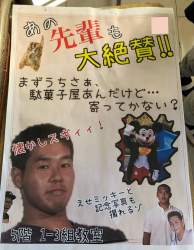 あの
先輩も
大絶賛!!
まずうちさぁ、
駄菓子屋あんだけど…
寄ってかない?
懐かしスギィィ!
えせミッキーと
記念写真も
撮れるゾ
5階 1-3組教室